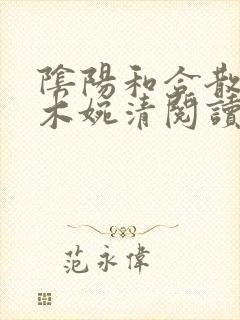 陰陽和合散
木婉清閱讀
范永偉